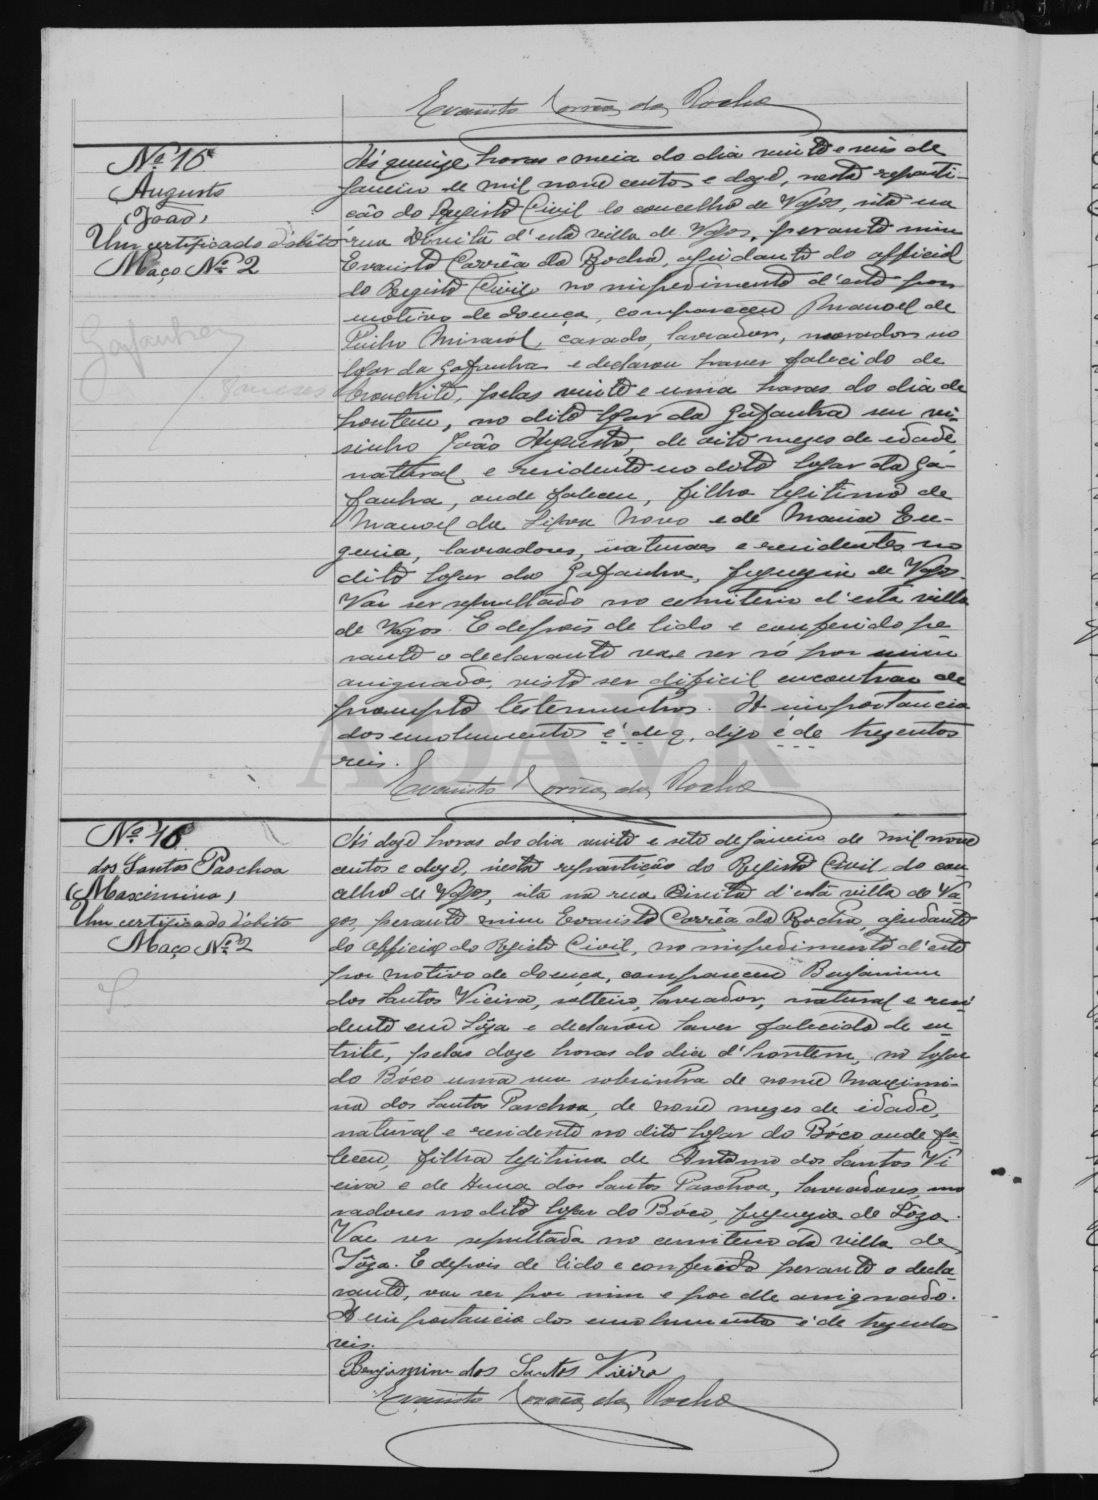 Evaristo Corrêa da Rocha
Nº 15
Augusto
(João)
Um certificado d'obito
Maço Nº 2
Gafanha
Ás quinze horas e meia do dia vinte e seis de
Janeiro de mil nove centos e doze, nesta reparti-
ção do Registo Civil do concelho de Vagos, sita na
rua Direita d'esta villa de Vagos, perante mim
Evaristo Corrêa da Rocha, ajudante do official
do Registo Civil, no impedimento d'este por
motivo de doença, compareceu Manoel de
Pinho, casado, lavrador, morador no
logar da Gafanha e declarou haver falecido de
bronchite, pelas vinte e uma horas do dia de
hontem, no dito logar da Gafanha seu vi-
sinho João Augusto, de oito mezes de edade
natural e residente no dito logar da Ga-
fanha, onde faleceu, filho legitimo de
Manoel da Silva Novo e de Maria Eu-
genia, lavradores, naturaes e residentes no
dito logar da Gafanha, freguezia de Vagos.
Vae ser sepultado no cemiterio d'esta villa
de Vagos. E depois de lido e conferido pe-
rante o declarante vae ser só por mim
assignado, visto ser dificil encontrar de
prompto testemunhas. A importancia
dos emolumentos é de q, digo é de trezentos
reis.
Evaristo Corrêa da Rocha
Nº 16
dos Santos Paschoa
(Maximina)
Um certificado d'obito
Maço Nº 2
Ás doze horas do dia vinte e sete de Janeiro de mil nove
centos e doze, n'esta repartição do Registo Civil do con-
celho de Vagos, sita na rua Direita d'esta villa de Va-
gos, perante mim Evaristo Corrêa da Rocha, ajudante
do official do Registo Civil, no impedimento d'este
por motivo de doença, compareceu Benjamim
dos Santos Vieira, solteiro, lavrador, natural e resi-
dente em Sôza e declarou haver falecido de en-
trite, pelas doze horas do dia d'hontem, no logar
do Bóco uma sua sobrinha de nome Maximi-
na dos Santos Paschoa, de nove mezes de idade,
natural e residente no dito logar do Bóco, onde fa-
leceu, filha legitima de Antonio dos Santos Vi
eira e de Anna dos Santos Paschoa, lavradores, mo
radores no dito logar do Bóco, freguezia de Sôza.
Vae ser sepultada no cemiterio da villa de
Sôza. E depois de lido e conferido perante o decla-
rante, vae ser por mim e por elle assignado.
A importancia dos emolumentos é de trezentos
reis.
Benjamim dos Santos Vieira
Evaristo Corrêa da Rocha
ADAVR